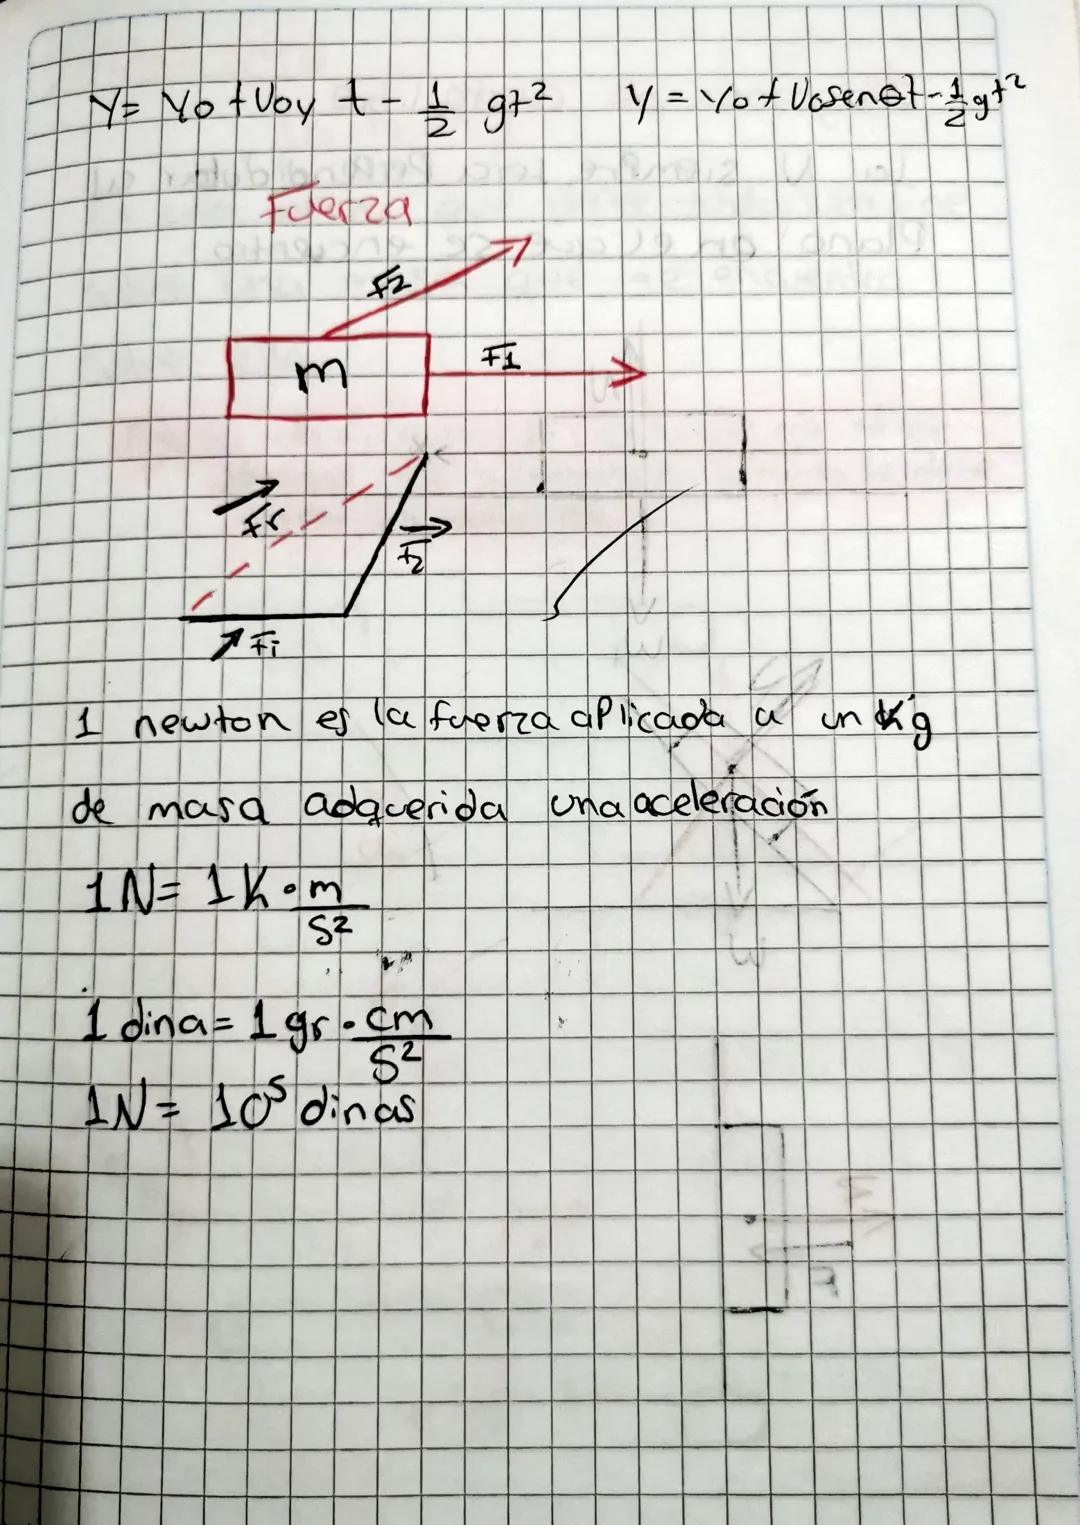 Y= Yo + Voy t - 1/2 gt² Y = Yo + Vosenθt - 1/2 gt²
Fuerza
F2
m
F1
Fr
F2
F1
1 newton es la fuerza aplicada a un Kg
de masa adquerida una aceleración
1N= 1K · m/s²
1 dina= 1 gr · cm/s²
1N= 10⁵ dinas